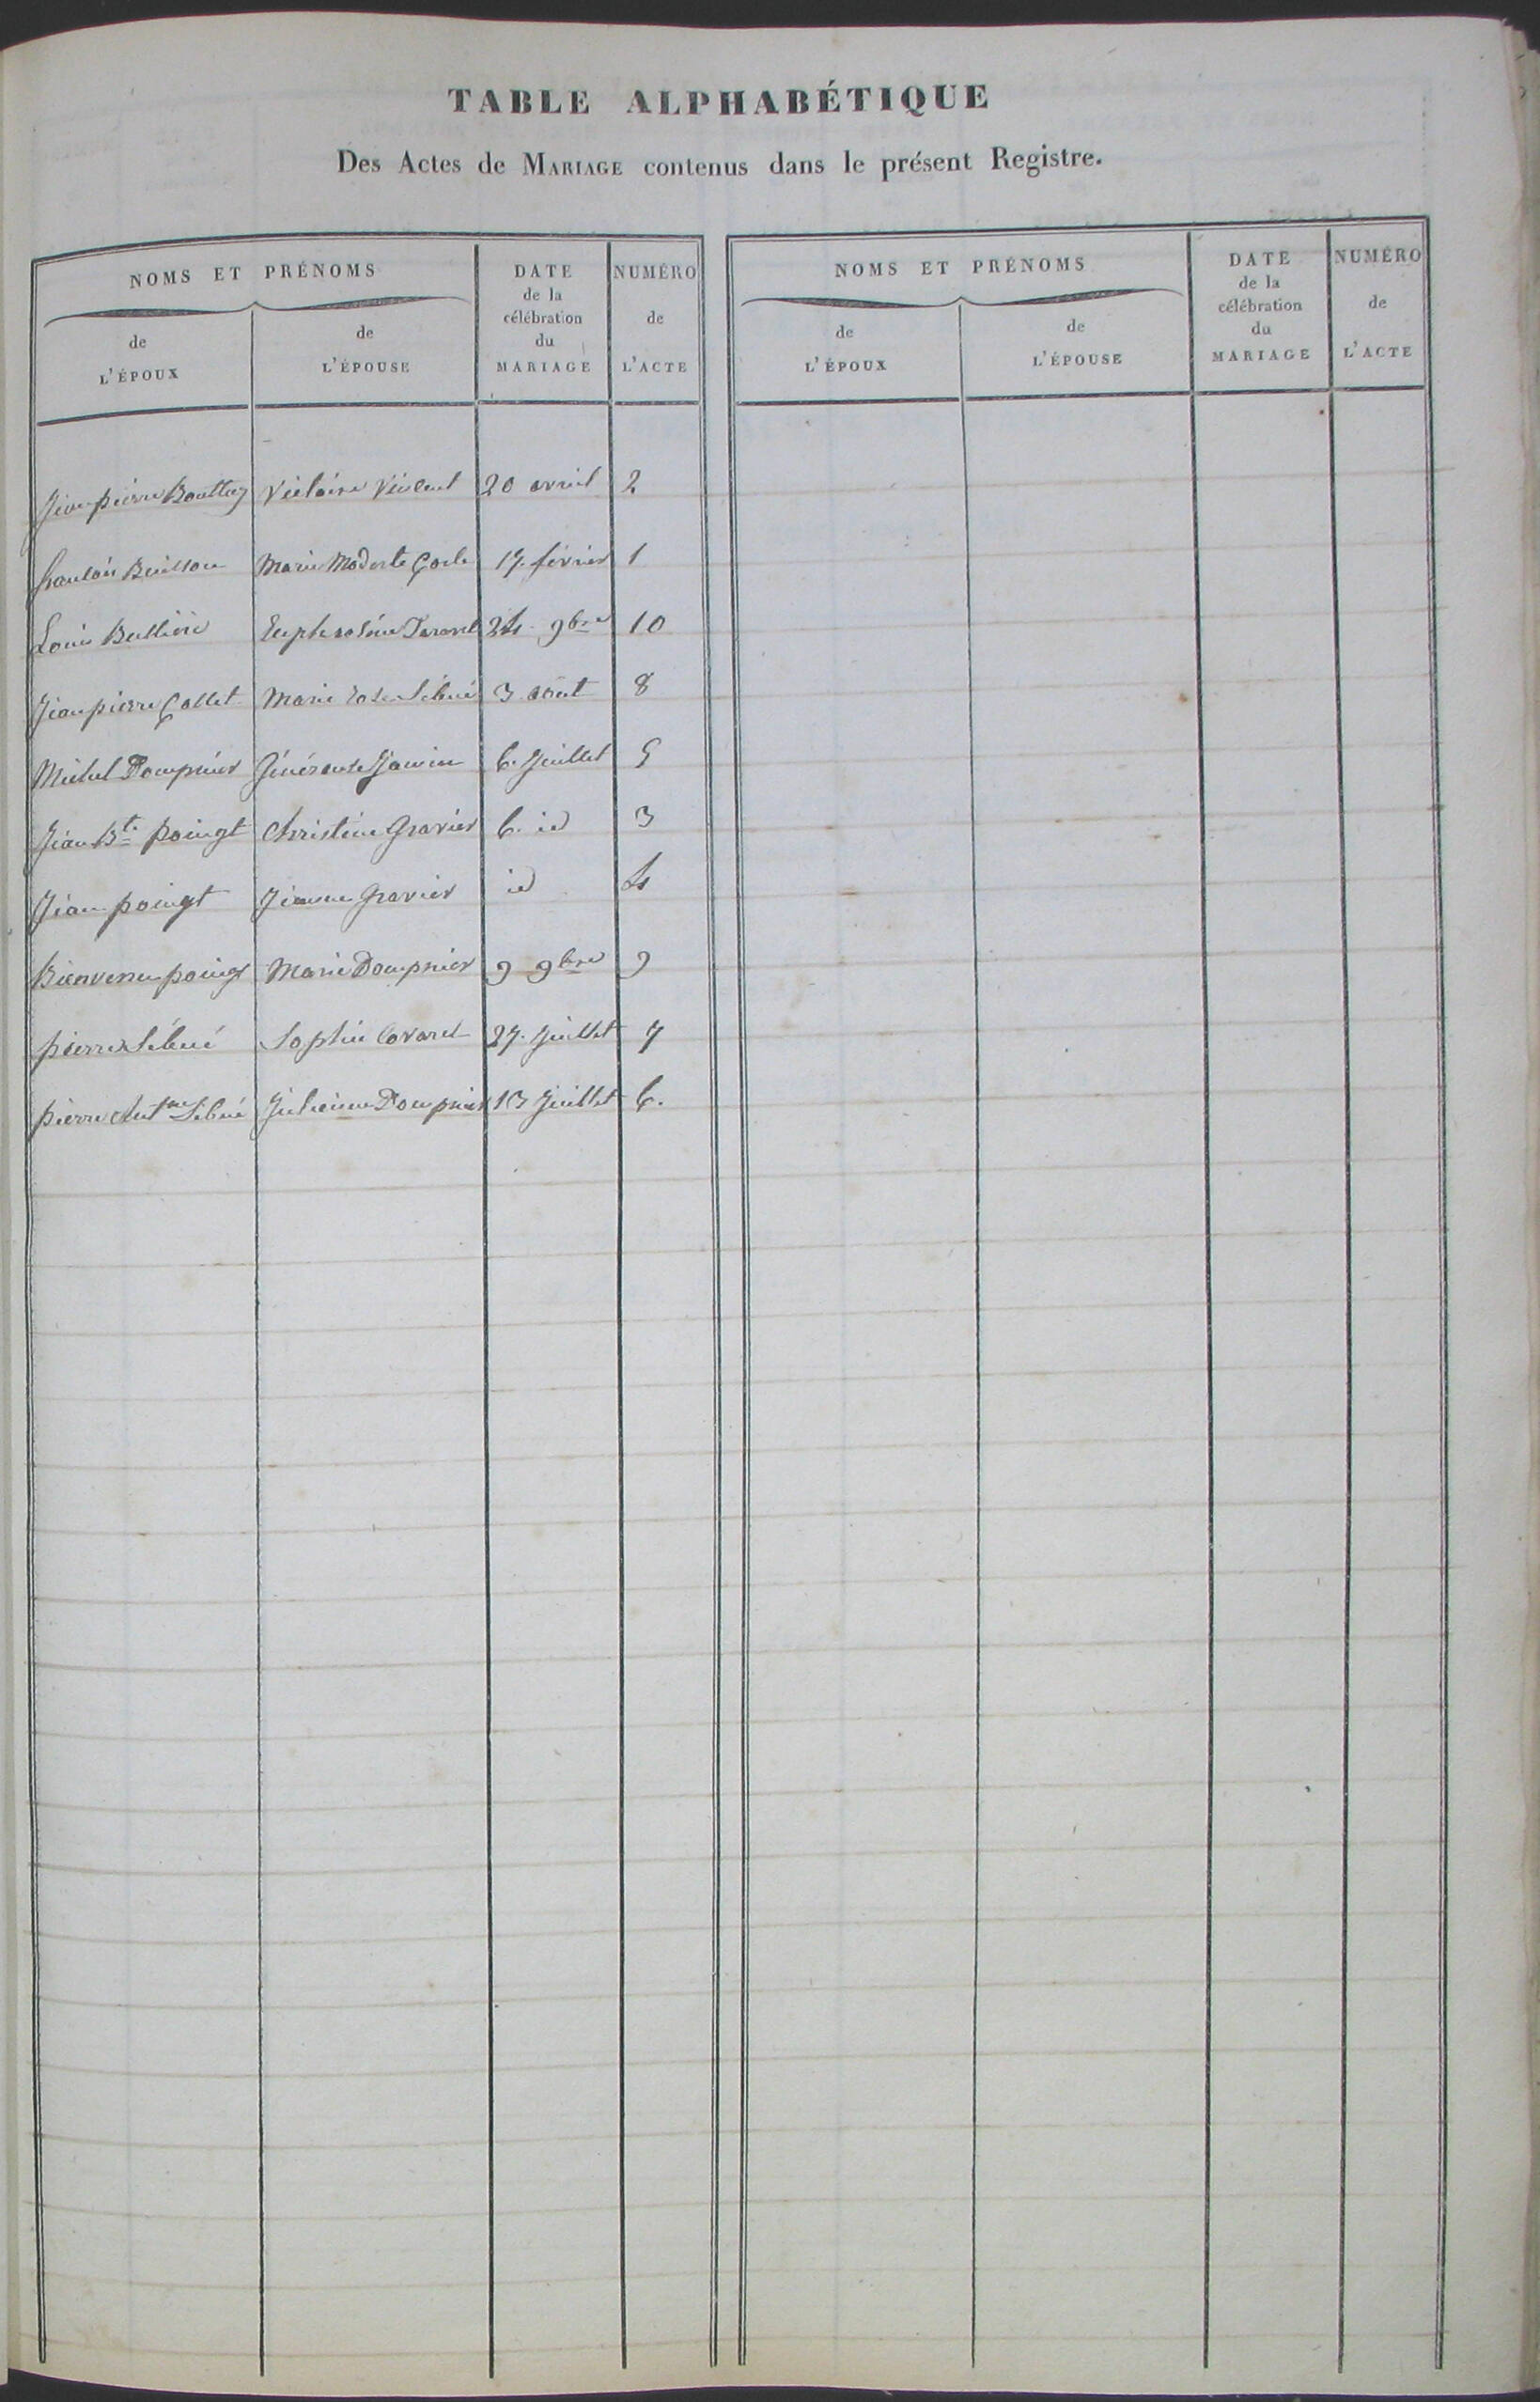 TABLE ALPHABÉTIQUE
Des Actes de MARIAGE contenus dans le présent Registre.
NOMS ET PRÉNOMS
de L'ÉPOUX
de L'ÉPOUSE
DATE de la célébration du MARIAGE
NUMÉRO de L'ACTE
NOMS ET PRÉNOMS
de L'ÉPOUX
de L'ÉPOUSE
DATE de la célébration du MARIAGE
NUMÉRO de L'ACTE
Jean pierre Victoire Vincent 20 avril 2
Buisson Marie Modeste 17. février 1
Louis Euphrosine 24 9bre 10
Jean pierre Collet Marie rose 3 août 8
Michel Dompnier Généreuse 6. Juillet 5
Jean Bte poingt Christine Gravier 6. id 3
Jean poingt Jeanne Gravier id 4
Bienvenu poingt Marie Dompnier 9 9bre 9
pierre Sophie Covarel 27. Juillet 7
pierre Antne Julienne Dompnier 13 Juillet 6.